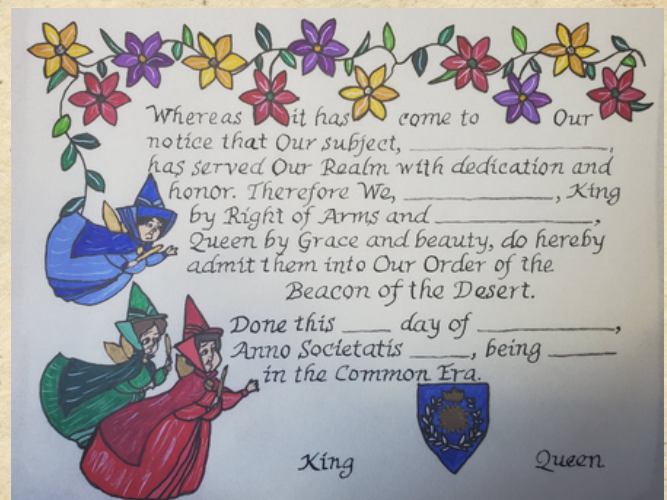 Whereas it has come to Our
notice that Our subject, ____________________,
has served Our Realm with dedication and
honor. Therefore We, ______________, King
by Right of Arms and ________________,
Queen by Grace and beauty, do hereby
admit them into Our Order of the
Beacon of the Desert.
Done this ____ day of ____________,
Anno Societatis _____, being ______
in the Common Era.
King Queen